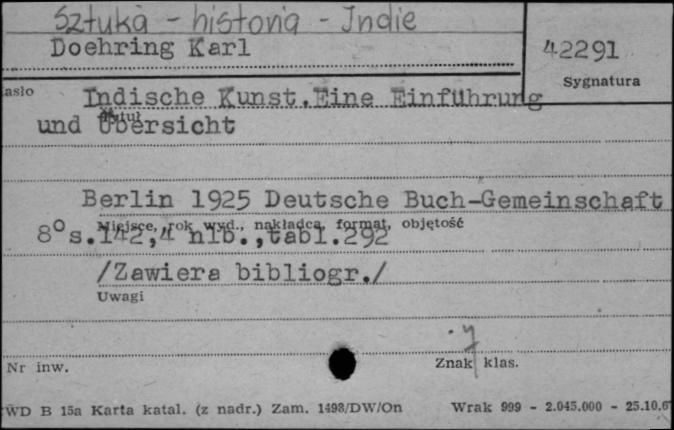 Sztuka - historia - Indie
Doehring Karl
42291
Sygnatura
asło
Indische Kunst. Eine Einführung
Tytuł
und Übersicht
Berlin 1925 Deutsche Buch-Gemeinschaft
Miejsce, rok wyd., nakładca, format, objętość
8° s.142,4 nlb.,tabl.292
/Zawiera bibliogr./
Uwagi
Nr inw.
Znak klas.
WD B 15a Karta katal. (z nadr.) Zam. 1498/DW/On Wrak 999 - 2.045.000 - 25.10.6